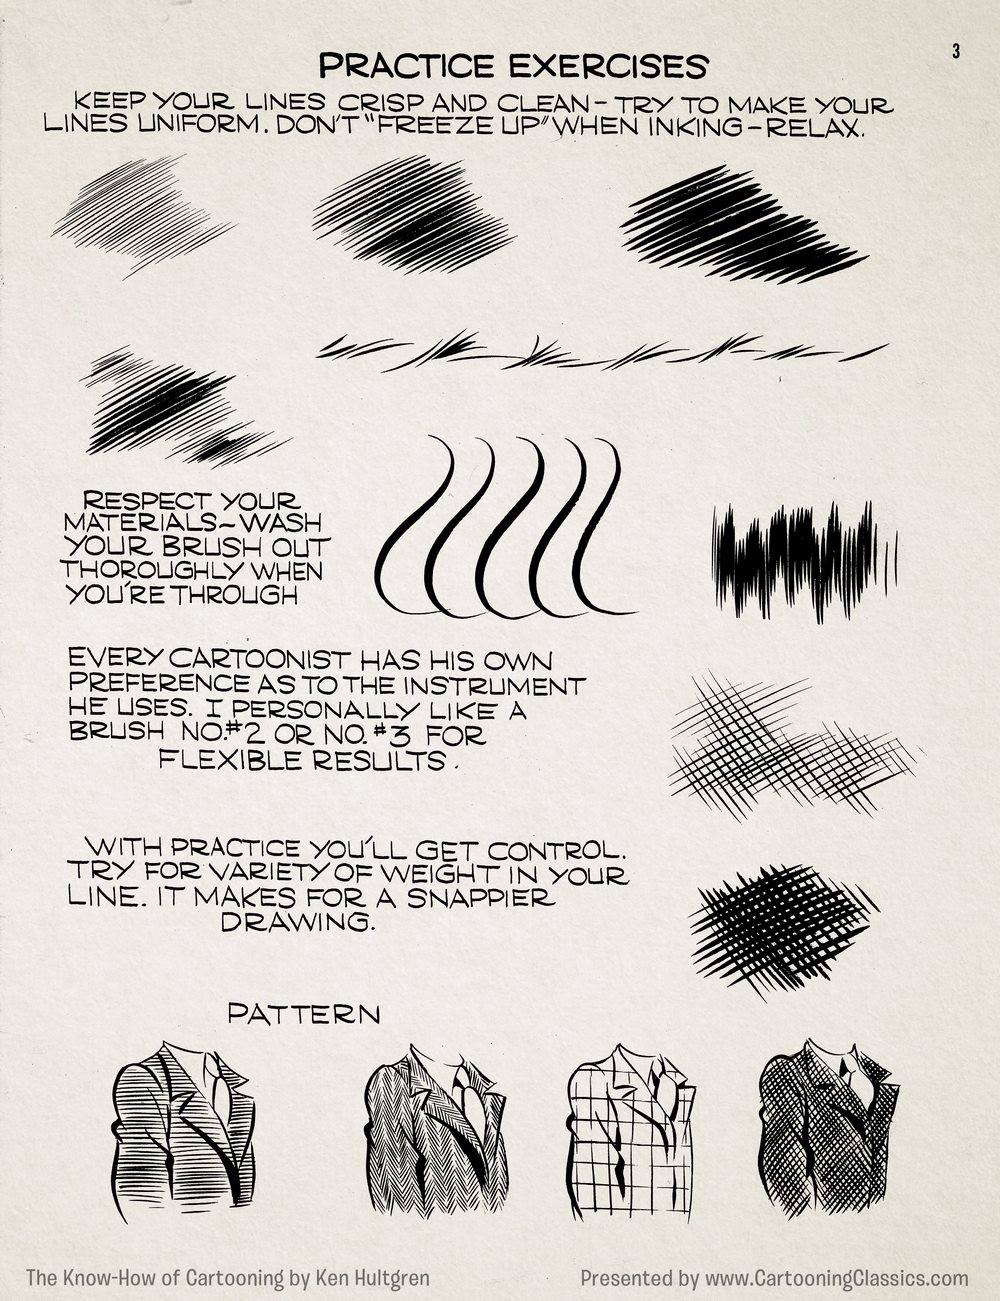 3
PRACTICE EXERCISES
KEEP YOUR LINES CRISP AND CLEAN - TRY TO MAKE YOUR
LINES UNIFORM. DON'T "FREEZE UP" WHEN INKING - RELAX.
RESPECT YOUR
MATERIALS ~ WASH
YOUR BRUSH OUT
THOROUGHLY WHEN
YOU'RE THROUGH
EVERY CARTOONIST HAS HIS OWN
PREFERENCE AS TO THE INSTRUMENT
HE USES. I PERSONALLY LIKE A
BRUSH NO. #2 OR NO. #3 FOR
FLEXIBLE RESULTS.
WITH PRACTICE YOU'LL GET CONTROL.
TRY FOR VARIETY OF WEIGHT IN YOUR
LINE. IT MAKES FOR A SNAPPIER
DRAWING.
PATTERN
The Know-How of Cartooning by Ken Hultgren
Presented by www.CartooningClassics.com